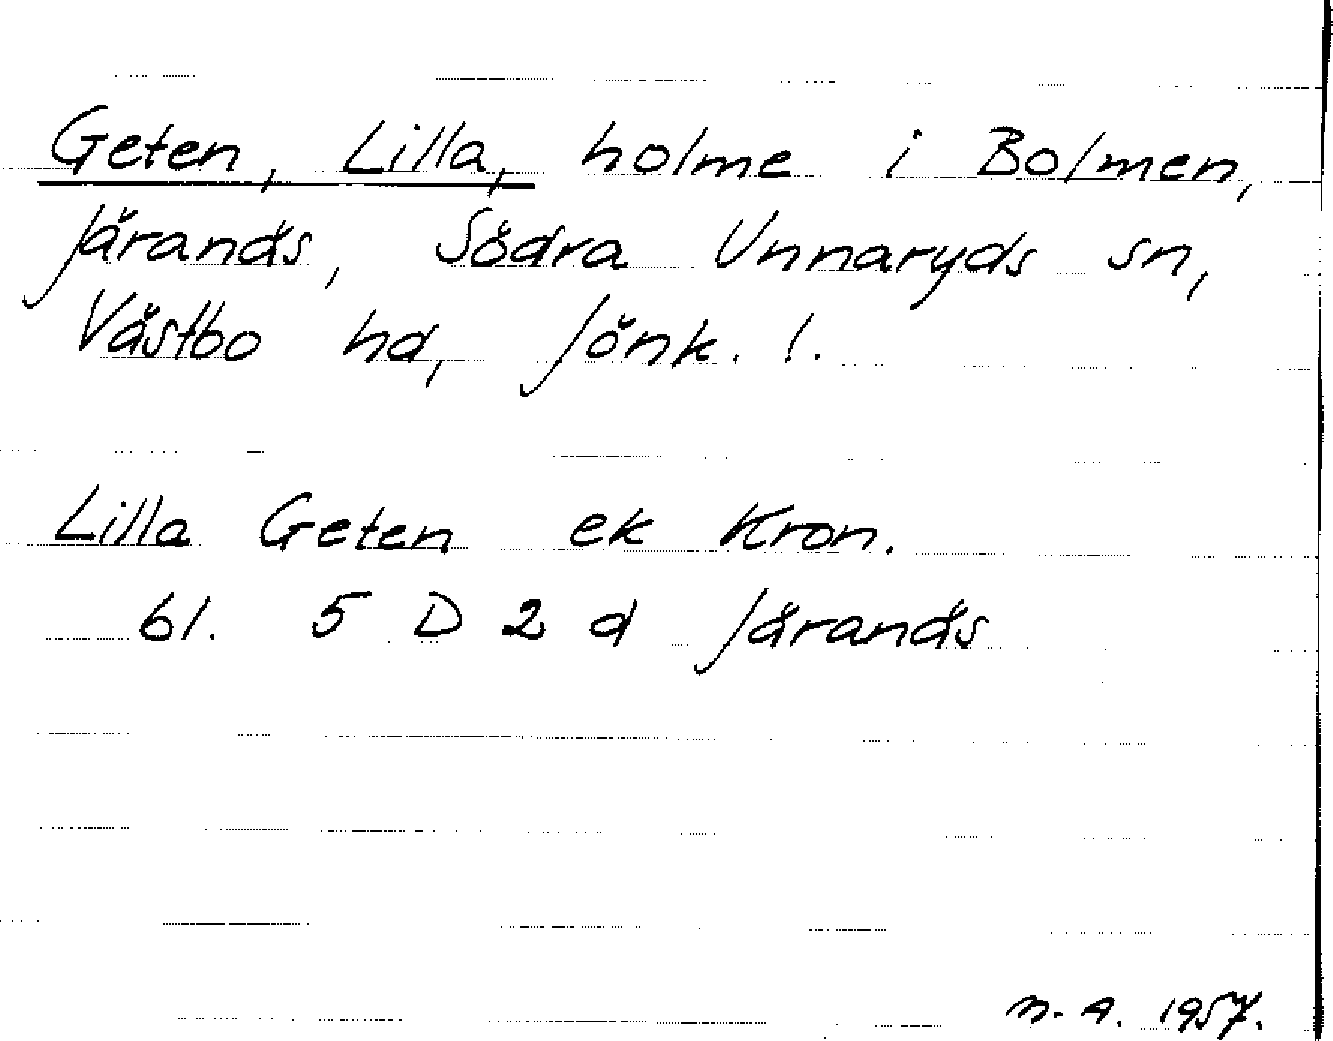 Geten, Lilla, holme i Bolmen,
Järands, Södra Unnaryds sn,
Västbo hd, Jönk. l.
Lilla Geten ek Kron.
bl. 5 D 2 d Järands
n. A. 1957.